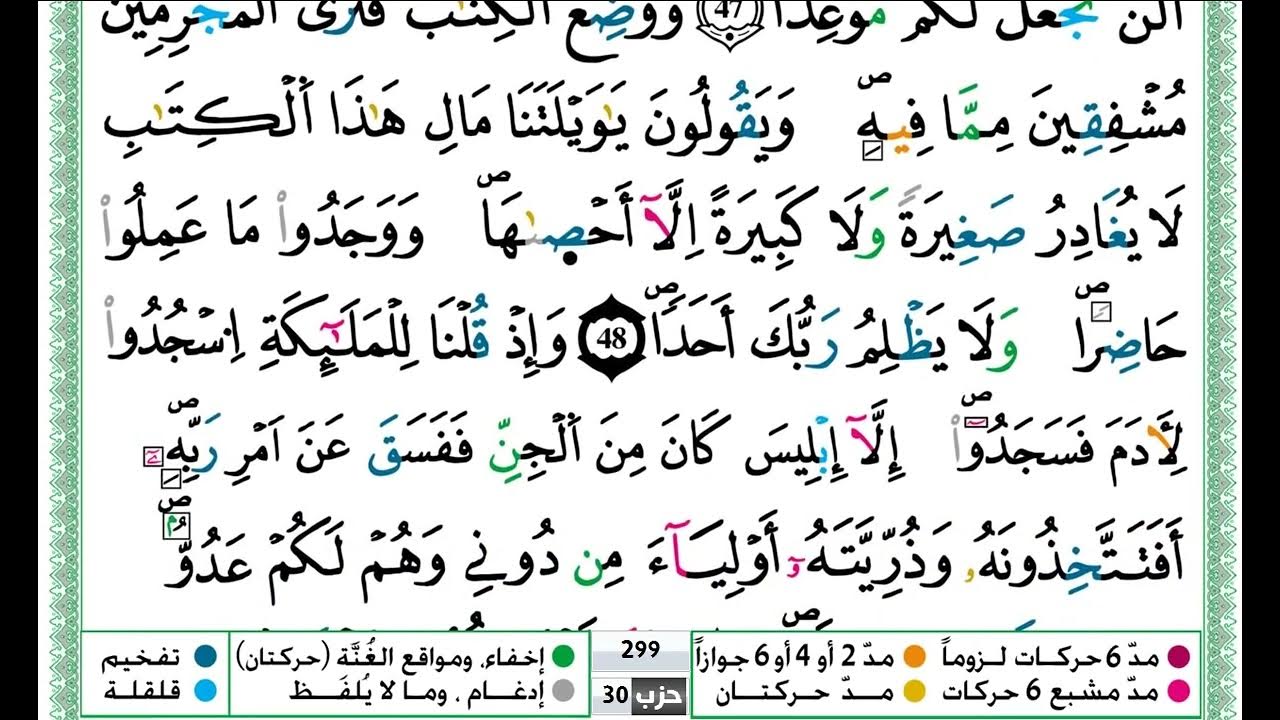 أَلَّن نَّجْعَلَ لَكُم مَّوْعِدًا 47 وَوُضِعَ الْكِتَٰبُ فَتَرَى الْمُجْرِمِينَ
مُشْفِقِينَ مِمَّا فِيهِ ۖ وَيَقُولُونَ يَٰوَيْلَتَنَا مَالِ هَٰذَا اَلْكِتَٰبِ
لَا يُغَادِرُ صَغِيرَةً وَلَا كَبِيرَةً اِلَّآ أَحْص۪ىٰهَا ۖ وَوَجَدُواْ مَا عَمِلُواْ
حَاضِرًا ۖ وَلَا يَظْلِمُ رَبُّكَ أَحَدًا ۖ 48 وَإِذْ قُلْنَا لِلْمَلَٰٓئِكَةِ اِسْجُدُواْ
لِأَدَمَ فَسَجَدُوٓاْ ۖ إِلَّآ إِبْلِيسَ كَانَ مِنَ اَلْجِنِّ فَفَسَقَ عَنَ اَمْرِ رَبِّهِۦٓ ۖ
أَفَتَتَّخِذُونَهُۥ وَذُرِّيَّتَهُۥٓ أَوْلِيَآءَ مِن دُونِي وَهُمْ لَكُمْ عَدُوٌّ ۖ
مدّ 6 حركات لزوماً مدّ 2 أو 4 أو 6 جوازاً 299 إخفاء، ومواقع الغُنَّة (حركتان) تفخيم
مدّ مشبع 6 حركات مدّ حركتان حزب 30 إدغام ، وما لا يُلفَظ قلقلة